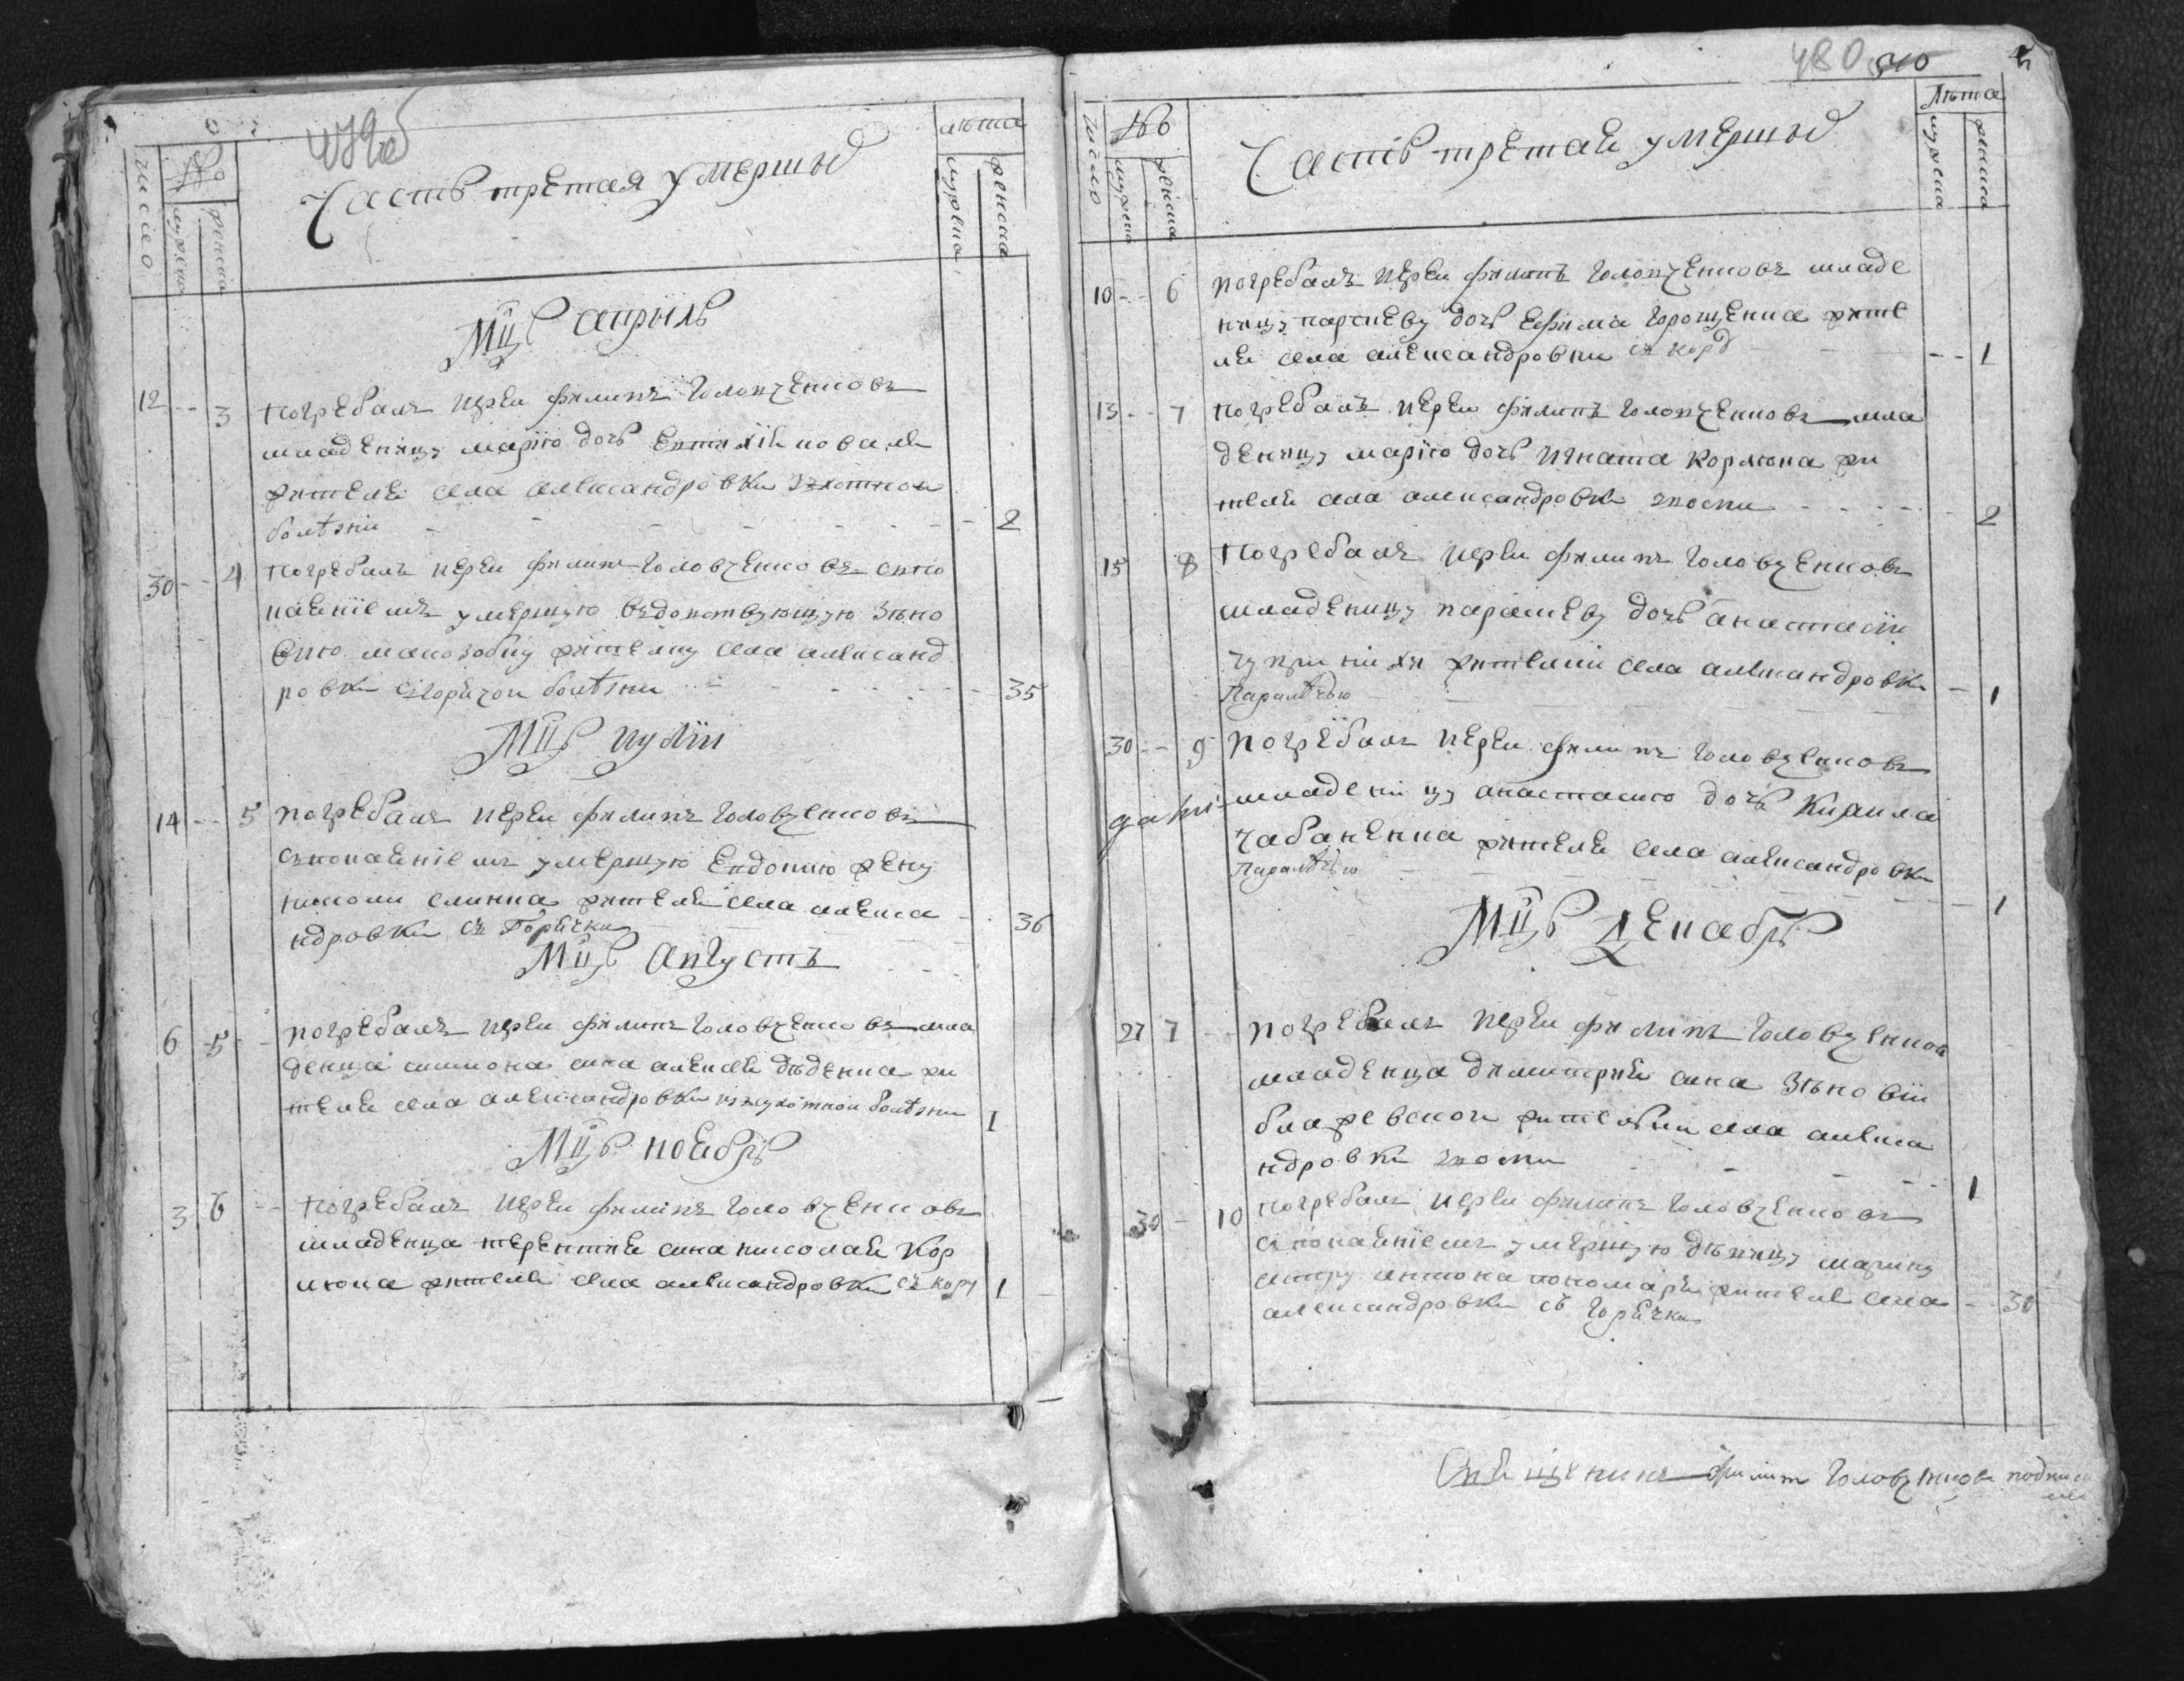 479об
число
№
мужеска
женска
Часть третая умершы
лета
мужеска
женска
Мцъ априль
12 3 погребалъ иерей филипъ головченковъ
младеницу марїю дочь
жителя села александровки
болѣзни 2
30 4 погребалъ иерей филипъ головченковъ спо
каянїемъ умершую вдовствующую Зѣно
вию жителку села александ
ровки сгорячои болѣзни 35
Мцъ иулїи
14 5 погребалъ иерей филипъ головченковъ
спокаянїемъ умершую Евдокию жену
жителя села алекса
ндровки съ Горячки 36
Мцъ августъ
6 5 погребалъ иерей филипъ головченковъ мла
денца симиона сина алексея дѣденка жи
теля села александровки болѣзни 1
Мцъ ноябрь
3 6 погребалъ иерей филипъ головченковъ
младенца терентия сина николая Кор
июна жителя села александровки съ кору 1
480 510
число
№
мужеска
женска
Часть третая умершы
Лѣта
мужеска
женска
10 6 погребалъ иерей филипъ головченковъ младе
ницу параскеву дочь Ефима Горощенка жите
ля села александровки съ кору 1
13 7 погребалъ иерей филипъ головченковъ мла
деницу марїю дочь игната кориюна жи
теля села александровки зкоски 2
15 8 погребалъ иерей филипъ головченковъ
младеницу параскеву дочь анастасїи
жителки села александровки
Паралѣчью 1
30 9 погребалъ иерей филипъ головченковъ
младеницу анастасию дочь Кирила
чабаненка жителя села александровки
Паралѣчью 1
Мцъ Декабрь
27 7 погребалъ иерей филипъ головченковъ
младенца димитрия сина Зѣновїи
жителки села алекса
ндровки зкоски 1
30 10 погребалъ иерей филипъ головченковъ
спокаянїемъ умершую дѣвицу марину
сестру антона пономаря жителя села
александровки съ горячки 30
Священникъ филипъ Головченковъ подписа
лъ